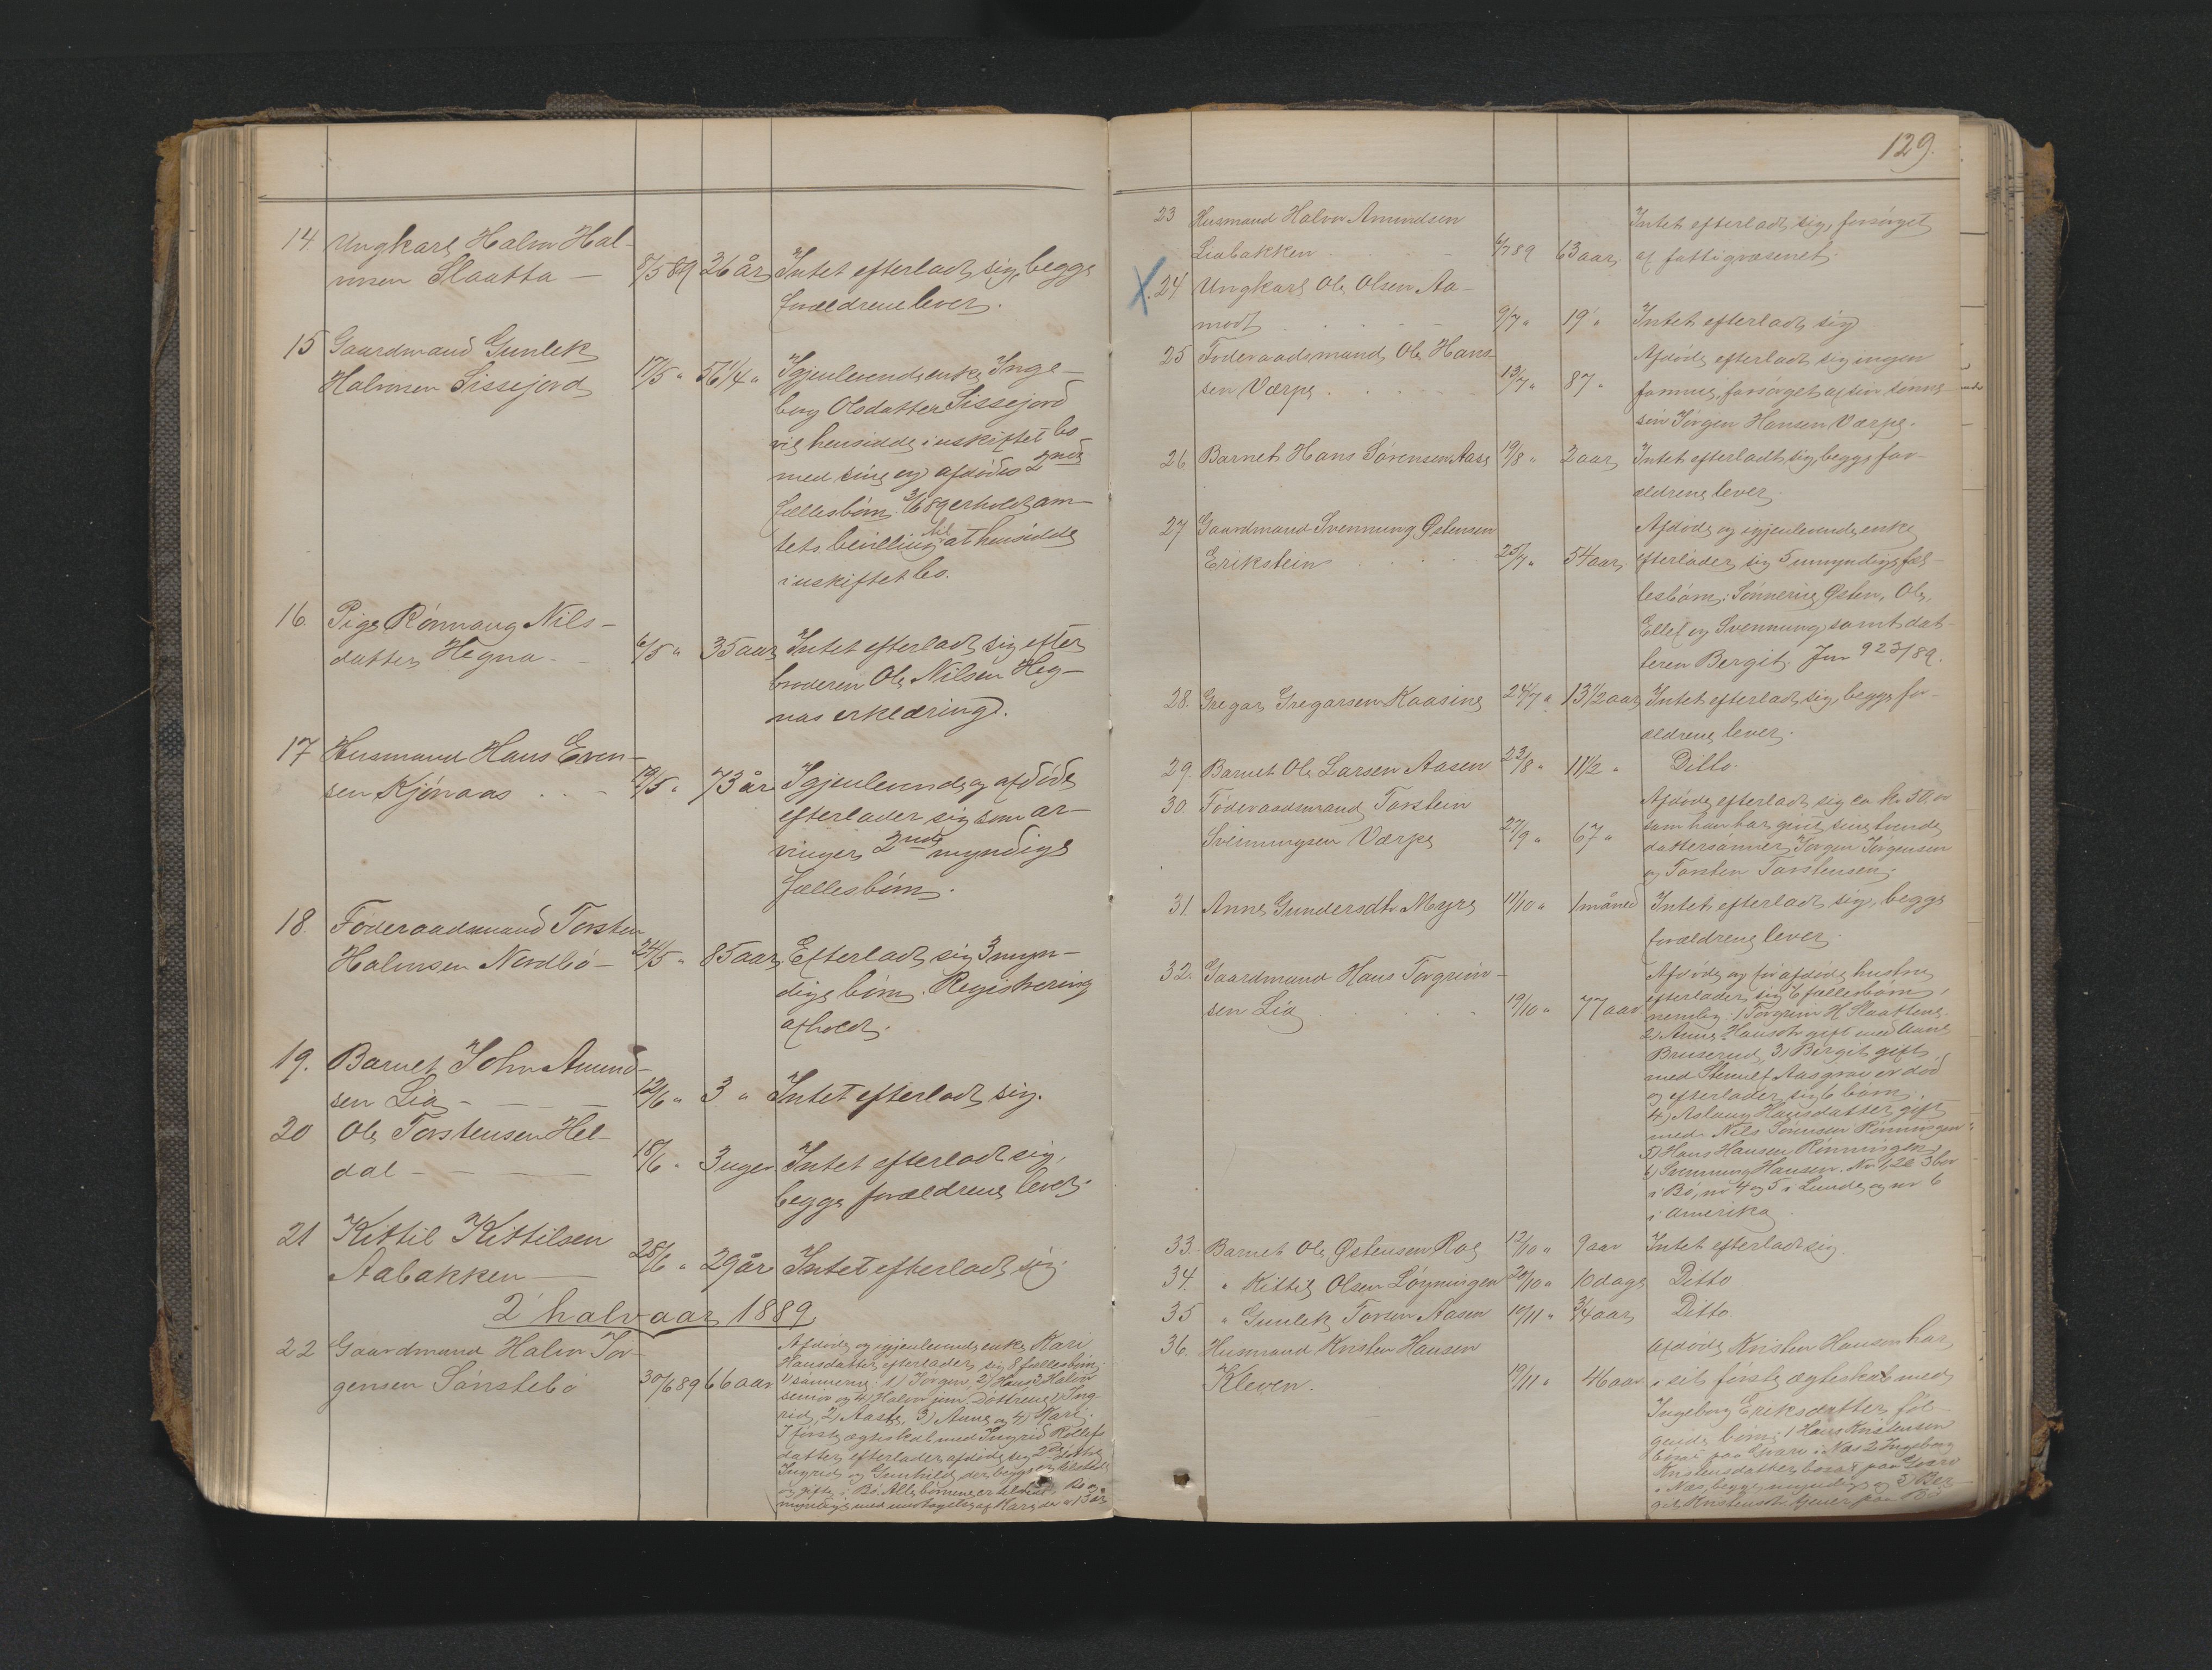 14 Ungkarl Halvor Hal-
vorsen Slaatta — 8/5 89 26 år Intet efterladt sig, begge
forældrene lever.
15 Gaardmand Gunlek
Halvorsen Sissejord 17/5 " 56 1/4 " Igjenlevende enke Inge-
borg Olsdatter Sissejord
vil hensidde i uskiftet bo
med sine og afdødes 2nde
fællesbørn. 3/6 89 erholdt am-
tets bevilling til at hensidde
i uskiftet bo.
16. Pige Rønnaug Nils-
datter Hegna - 6/5 " 35 aar Intet efterladt sig efter
broderen Ole Nilsen Heg-
nas erklæring.
17 Husmand Hans Even-
sen Kjønaas . . - 19/5 " 73 år Igjenlevende og afdøde
efterlader sig som ar-
vinger 2nde myndige
fællesbørn.
18. Føderaadsmand Torsten
Halvorsen Nordbø - 24/5 " 85 aar Efterladt sig 3 myn-
dige børn. Registrering
afholdt.
19. Barnet John Amund-
sen Lia - — — 12/6 " 3 " Intet efterladt sig.
20 Ole Torstensen Hel-
dal - — — 18/6 " 3 uger Intet efterladt sig,
begge forældrene lever.
21 Kittil Kittilsen
Aabakken — 25/6 " 29 år Intet efterladt sig
2' halvaar 1889
22 Gaardmand Halvor Jør-
gensen Sønstebø 30/6 89 66 aar
Afdøde og igjenlevende enke Kari
Hansdatter efterlader sig 8 fællesbørn:
sønnerne: 1) Jørgen, 2) Hans 3) Halvor
senior og 4) Halvor jun. Døttrene 1) Ing-
rid, 2) Aaste, 3) Anne og 4) Kari.
I første ægteskab med Ingrid Rollefs-
datter efterlader afdøde sig 2de døttre
Ingrid og Gunhild, der begge er
og gifte i Bø. Alle børnene er
myndige med undtagelse af Kari der er 13 år
129.
23 Husmand Halvor Amundsen Intet efterladt sig, forsørget
Liabakken . . . 6/7 89 63 aar af fattigvæsenet.
X. 24 Ungkarl Ole Olsen Aa-
modt . . . 9/7 " 19 " Intet efterladt sig
25 Føderaadsmand Ole Hans- Afdøde efterladt sig ingen
sen Værpe . . . 13/7 " 87 " formue, forsørget af sin sønne-
søn Jørgen Hansen Værpe.
26 Barnet Hans Sørensen Aase 19/8 " 2 aar Intet efterladt sig, begge for-
ældrene lever.
27 Gaardmand Svennung Østensen Afdøde og igjenlevende enke
Erikstein . . . 25/7 " 54 aar efterlader sig 5 umyndige fæl-
lesbørn: Sønnerne Østen, Ole,
Ellef og Svennung samt dat-
teren Bergit. Jnr 923/89.
28. Gregar Gregarsen Kaasine 24/7 " 13 1/2 aar Intet efterladt sig, begge for-
ældrene lever.
29. Barnet Ole Larsen Aasen 22/8 " 11 1/2 " Ditto.
30. Føderaadsmand Torstein Afdøde efterladt sig ca. kr 50.00
Sveinungsen Værpe 27/9 " 67 " som han har givet sine tvende
dattersønner Jørgen Jørgensen
og Torsten Torstensen.
31. Anne Gundersdtr Myre 11/10 " 1 måned Intet efterladt sig, begge
forældrene lever.
32. Gaardmand Hans Torgrim- Afdøde og forafdøde hustru
sen Lia . . . 19/10 " 77 aar efterlader sig 6 fællesbørn,
nemlig: 1) Torgrim H Slaattene
2) Anne Hansdtr gift med
Bruserud, 3) Birgit gift
med Stenulf Aasgrav er død
og efterlader sig 6 børn,
4) Aslaug Hansdatter gift
med Nils Sørensen Rønningen
5) Hans Hansen Rønningen,
6) Svennung Hansen. No 1, 2 & 3 bor
i Bø, no 4 og 5 i Lunde og no 6
i Amerika.
33. Barnet Ole Østensen Roe 12/10 " 9 aar Intet efterladt sig.
34. " Kittil Olsen Løyningen 20/10 " 10 dage Ditto
35 " Gunlek Torsen Aasen 10/11 " 3/4 aar Ditto
36. Husmand Kristen Hansen Afdøde Kristen Hansen har
Kleven. 19/11 " 46 aar i sit første ægteskab med
Ingeborg Eriksdatter føl-
gende børn: 1 Hans Kristensen
bosat paa i Næs 2 Ingeborg
Kristensdatter bosat paa
i Næs, begge myndige og 3) Ber-
git Kristensdtr tjener paa Bø